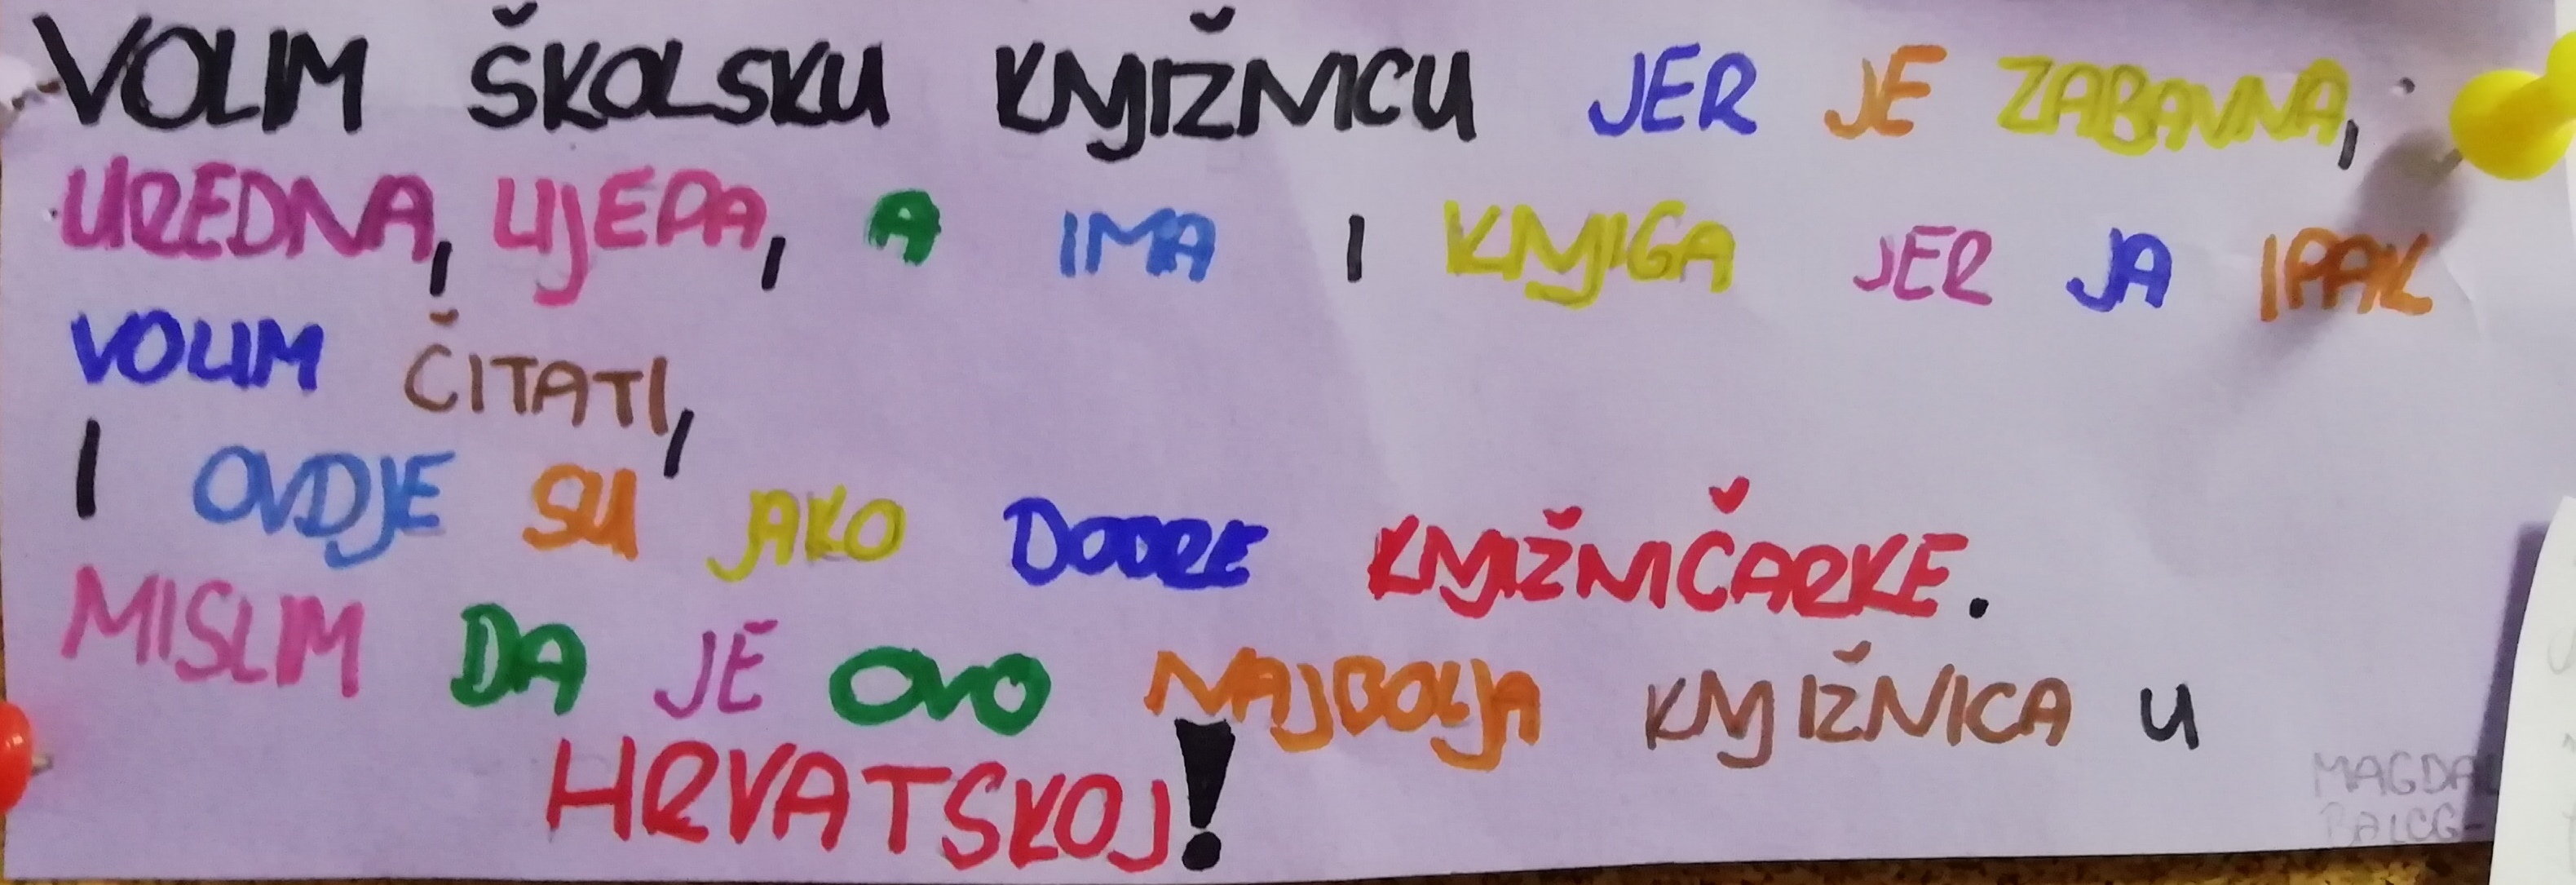 VOLIM ŠKOLSKU KNJIŽNICU JER JE ZABAVNA,
UREDNA, LIJEPA, A IMA I KNJIGA JER JA IPAK
VOLIM ČITATI,
I OVDJE SU JAKO DOBRE KNJIŽNIČARKE.
MISLIM DA JE OVO NAJBOLJA KNJIŽNICA U
HRVATSKOJ!